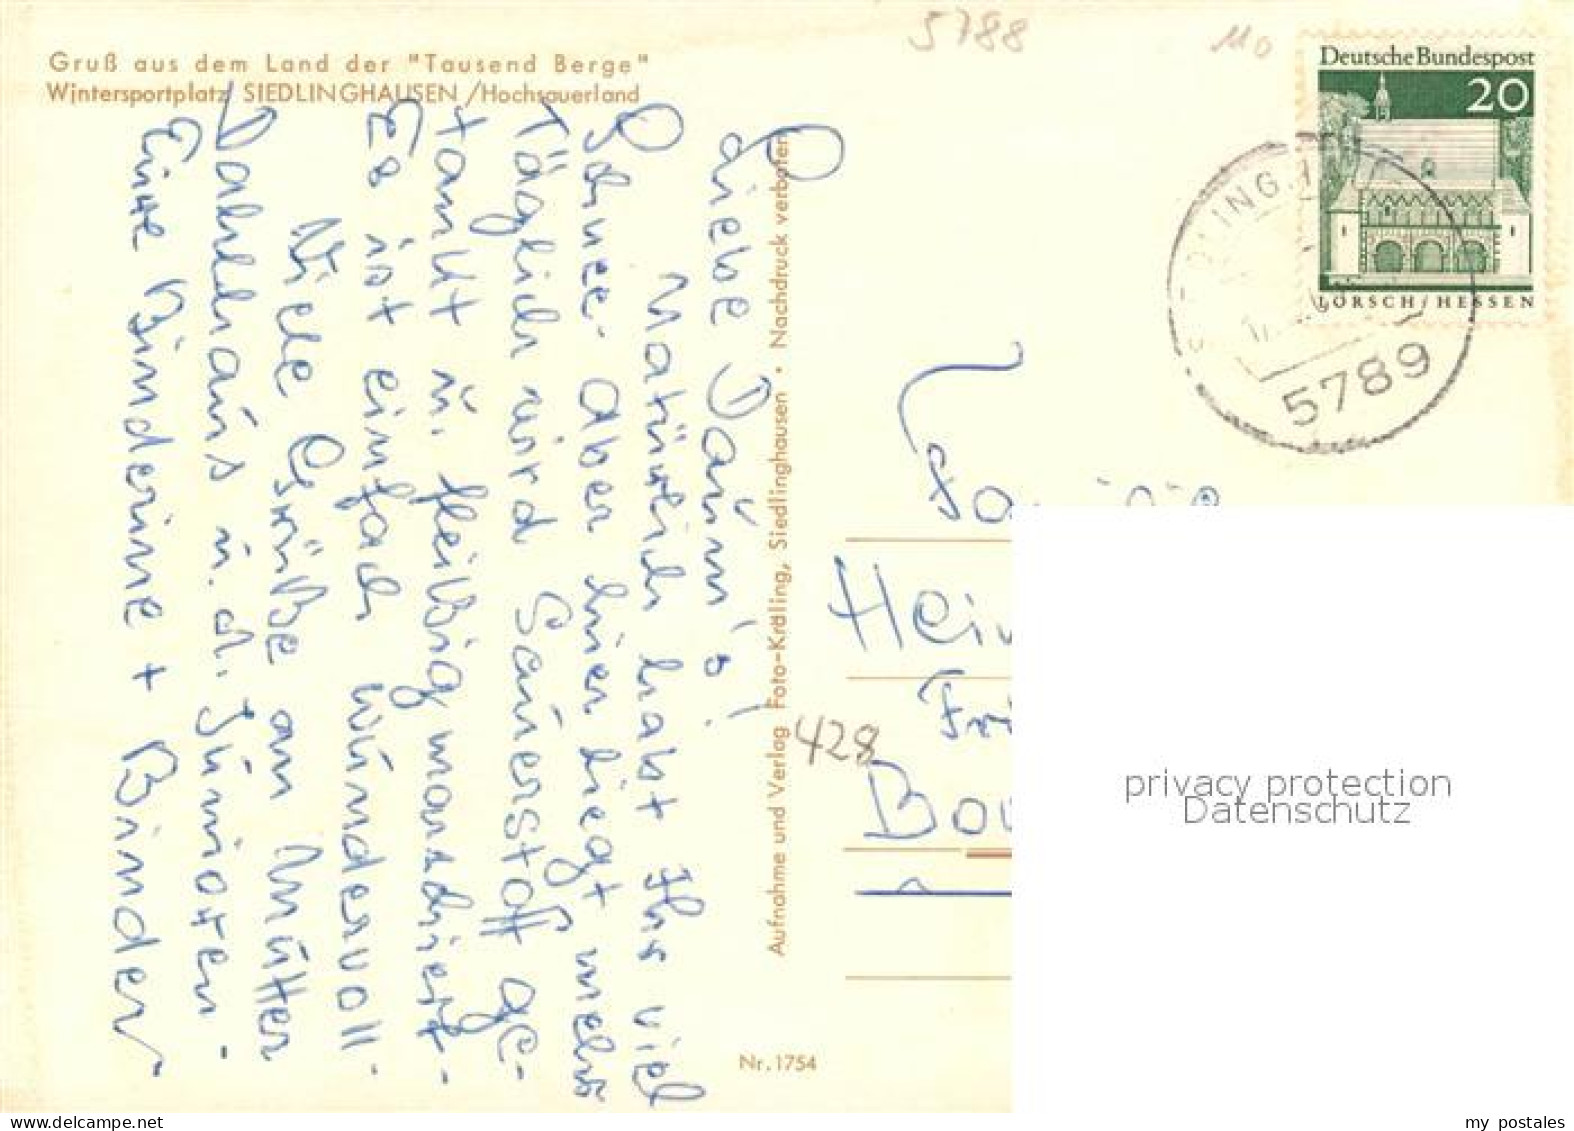 5788
110
Gruß aus dem Land der "Tausend Berge"
Wintersportplatz SIEDLINGHAUSEN /Hochsauerland
Deutsche Bundespost
20
LORSCH/HESSEN
5789
Liebe Daum's!
Natürlich habt Ihr viel
Schnee. Aber hier liegt mehr
Täglich wird Sauerstoff ge-
tankt u. fleißig marschiert.
Es ist einfach wundervoll.
Viele Grüße an Mutter
Dahlhaus u. d. Junioren.
Eure Binderine + Binder
Aufnahme und Verlag Foto-Kräling, Siedlinghausen · Nachdruck verboten
Nr. 1754
428
privacy protection
Datenschutz
my postales